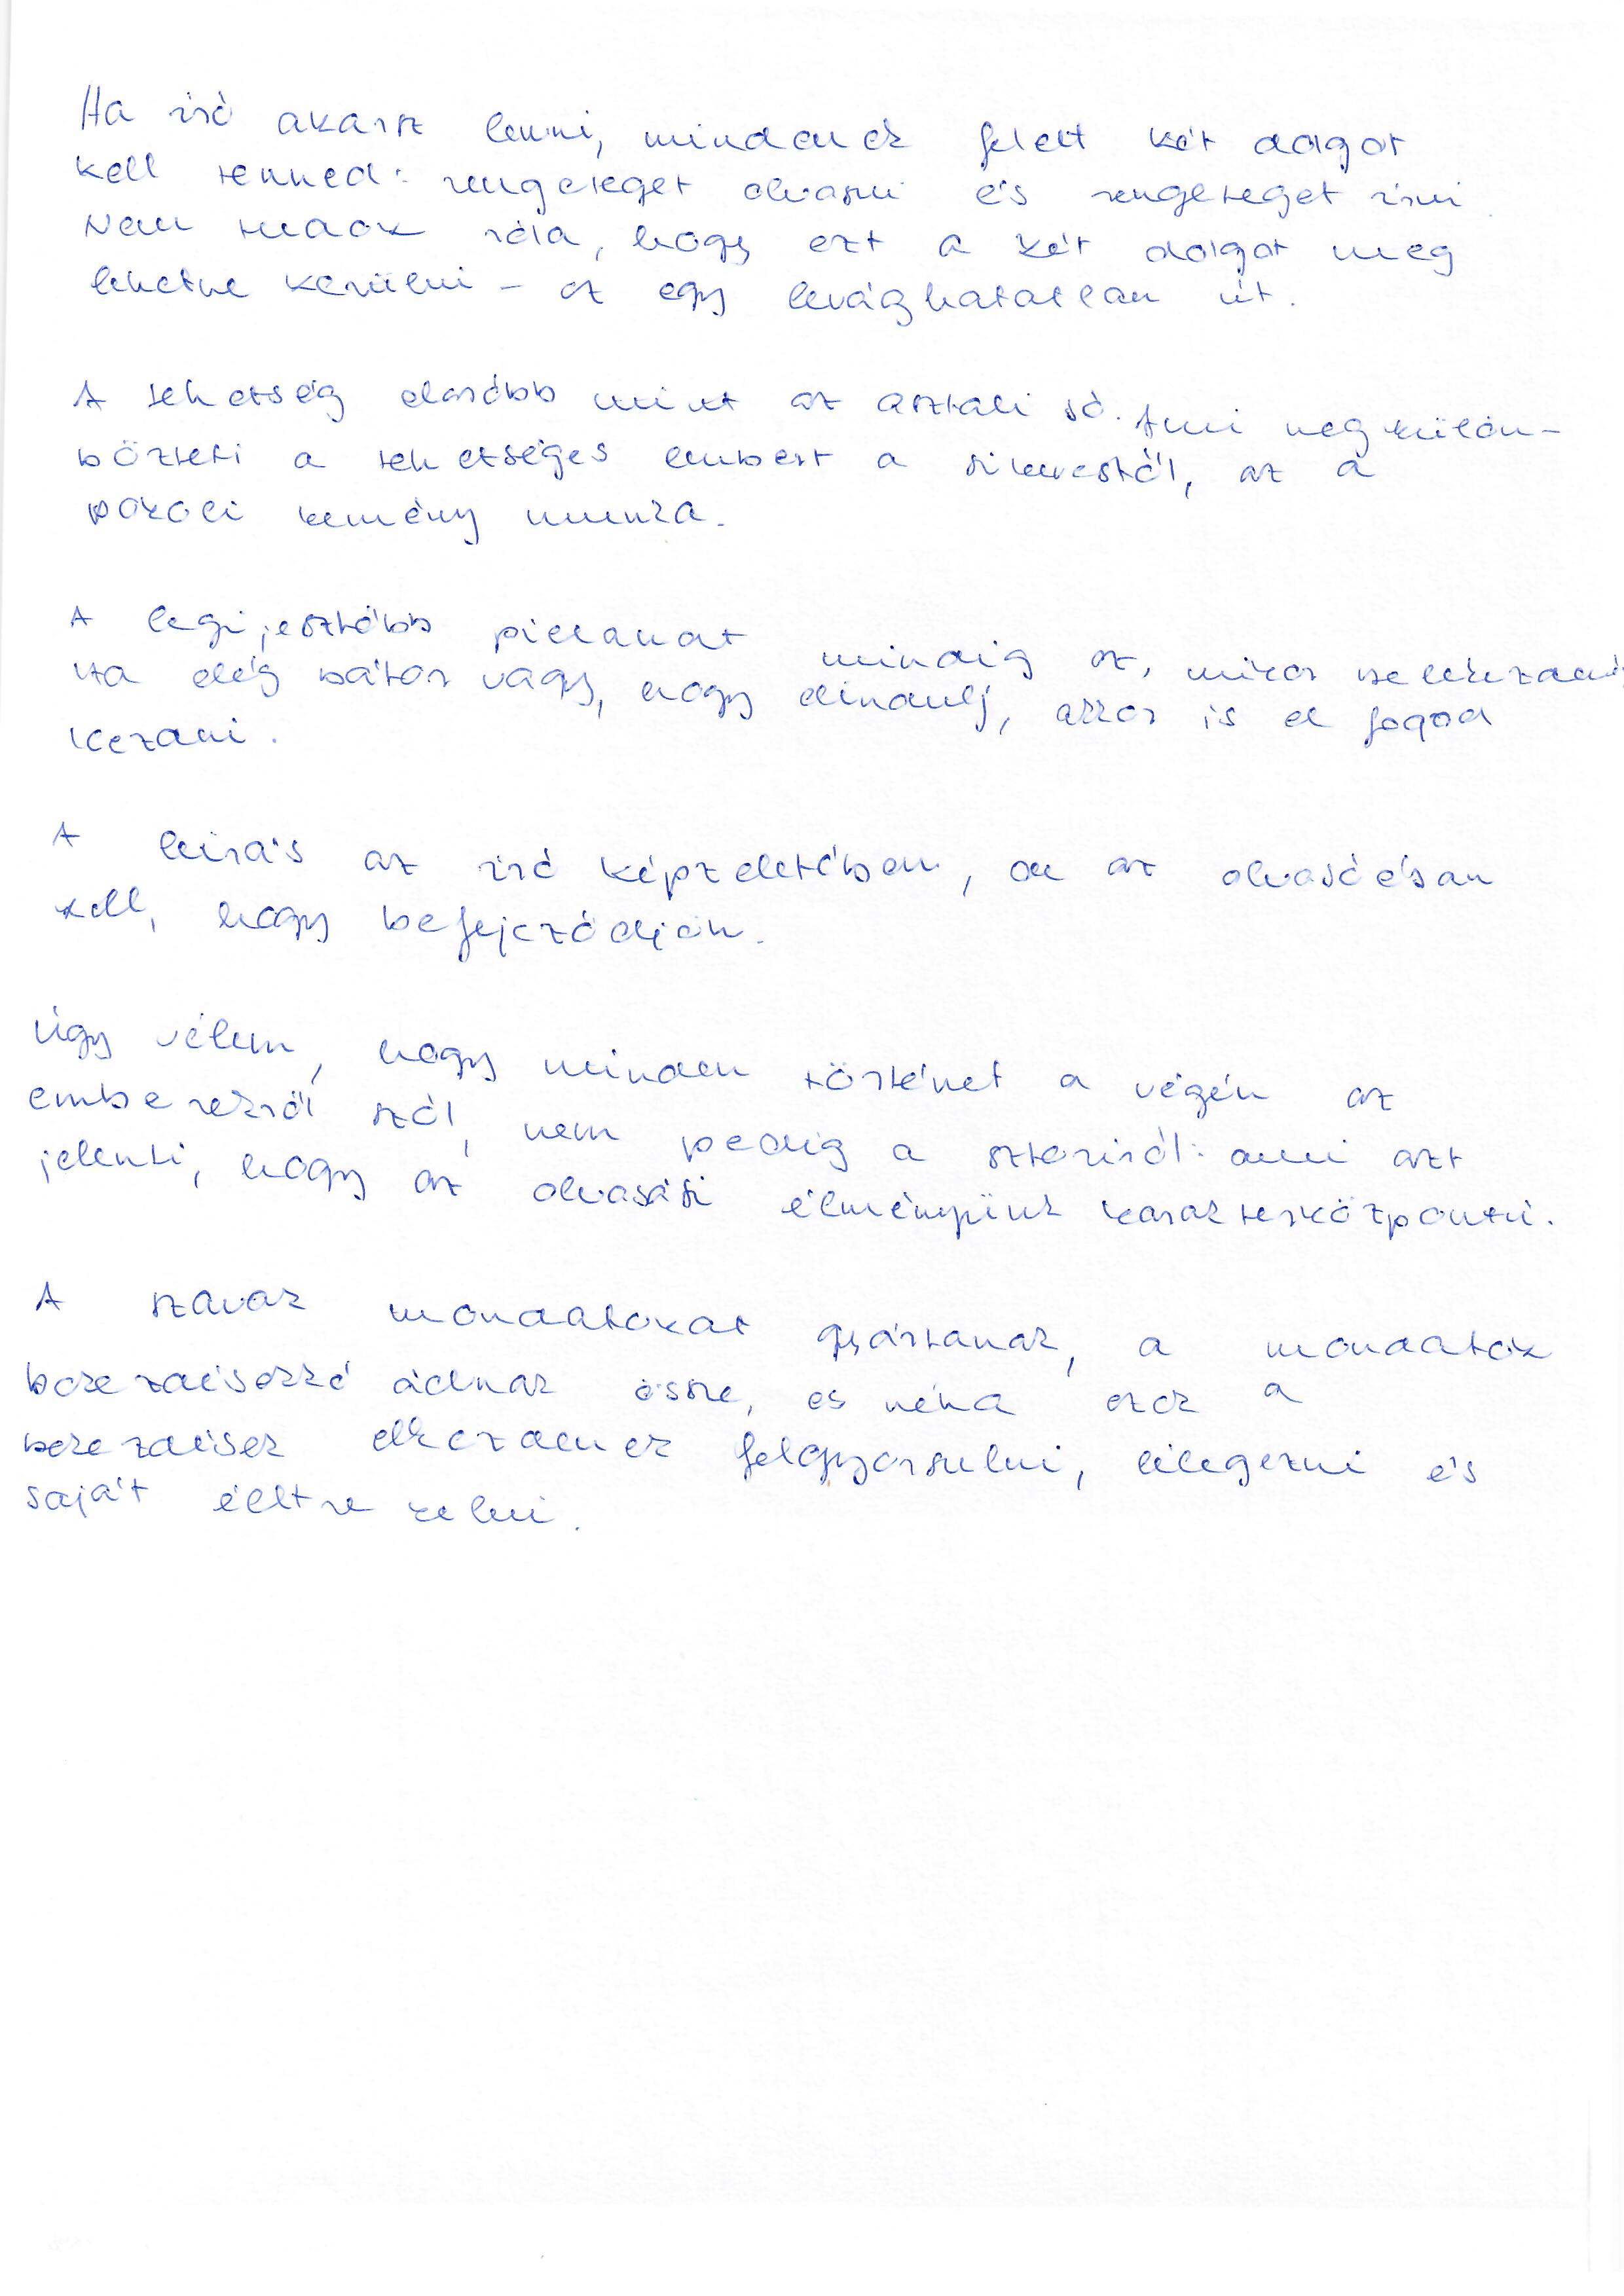 Ha író akarsz lenni, mindenek felett két dolgot
kell tenned: rengeteget olvasni és rengeteget írni.
Nem tudok róla, hogy ezt a két dolgot meg
lehetne kerülni – ez egy levághatatlan út.
A tehetség olcsóbb mint az asztali só. Ami megkülön-
bözteti a tehetséges embert a sikerestől, az a
pokoli kemény munka.
A legijesztőbb pillanat mindig az, mikor belekezdenél.
Ha elég bátor vagy, hogy elindulj, akkor is el fogod
kezdeni.
A leírás az író képzeletében, de az olvasóéban
kell, hogy befejeződjön.
Úgy vélem, hogy minden történet a végén az
emberekről szól, nem pedig a sztoriról: ami azt
jelenti, hogy az olvasási élményünk karakterközpontú.
A szavak mondatokat gyártanak, a mondatok
bekezdésekké állnak össze, és néha ezek a
bekezdések elkezdenek felgyorsulni, lélegezni és
saját életre kelni.